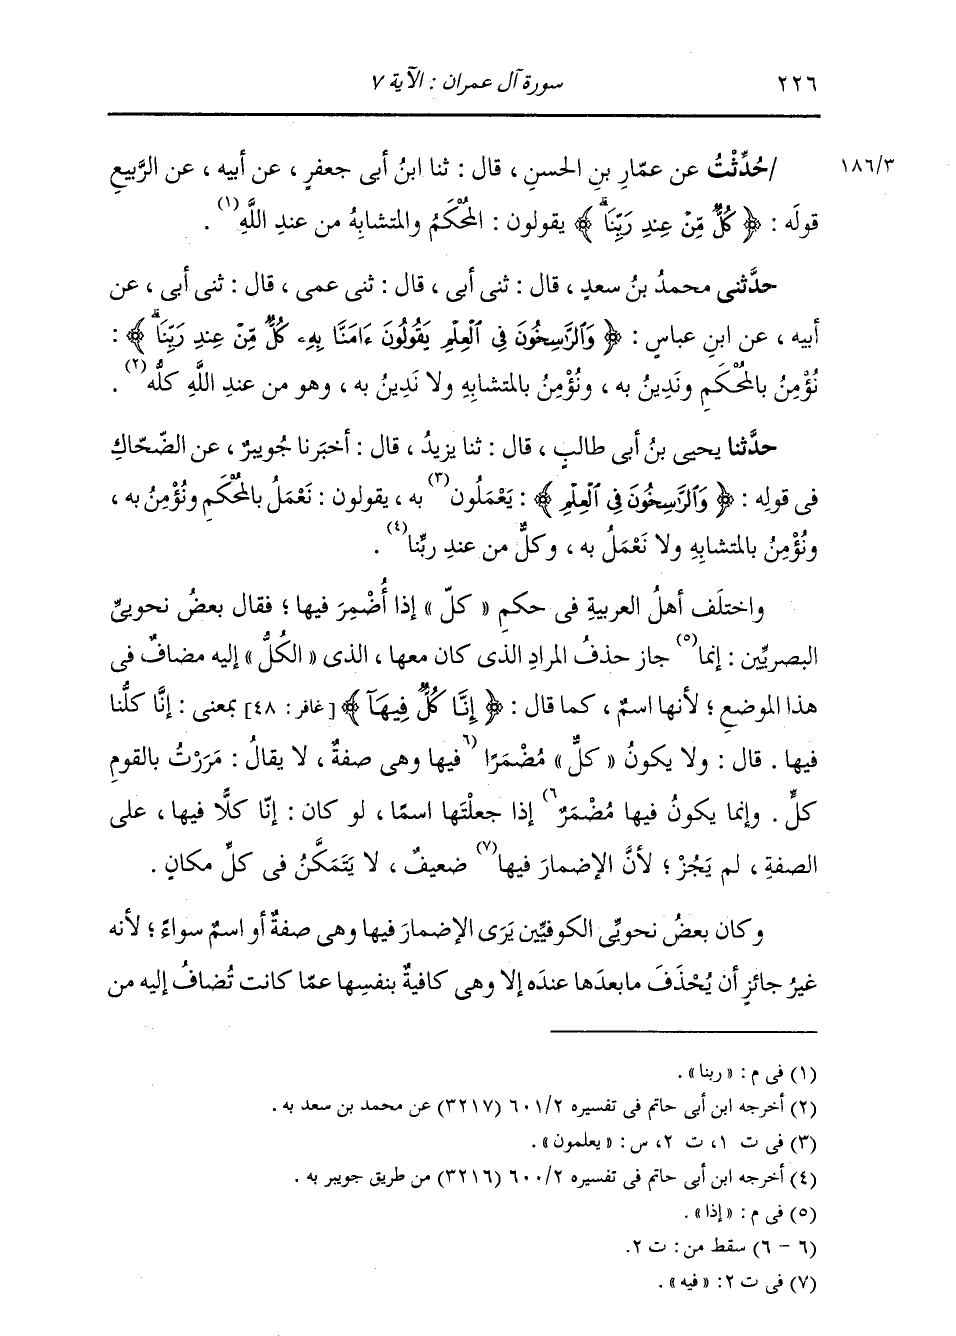 ٢٢٦
سورة آل عمران : الآية ٧
١٨٦/٣
/حُدِّثْتُ عن عمّارِ بنِ الحسنِ ، قال : ثنا ابنُ أبى جعفرٍ ، عن أبيه ، عن الرَّبيعِ
قولَه : ﴿ كُلٌّ مِّنْ عِندِ رَبِّنَاۗ ﴾ يقولون : المُحْكَمُ والمتشابِهُ من عندِ اللَّهِ(١) .
حدَّثنى محمدُ بنُ سعدٍ ، قال : ثنى أبى ، قال : ثنى عمى ، قال : ثنى أبى ، عن
أبيه ، عن ابنِ عباسٍ : ﴿ وَٱلرَّٰسِخُونَ فِى ٱلْعِلْمِ يَقُولُونَ ءَامَنَّا بِهِۦ كُلٌّ مِّنْ عِندِ رَبِّنَاۗ ﴾ :
نُؤْمِنُ بالمُحْكَمِ ونَدِينُ به ، ونُؤْمِنُ بالمتشابِهِ ولا نَدِينُ به ، وهو من عندِ اللَّهِ كلُّه(٢) .
حدَّثنا يحيى بنُ أبى طالبٍ ، قال : ثنا يزيدُ ، قال : أخبَرنا جُويبرٌ ، عن الضّحّاكِ
فى قولِه : ﴿ وَٱلرَّٰسِخُونَ فِى ٱلْعِلْمِ ﴾ : يَعْمَلُون(٣) به ، يقولون : نَعْمَلُ بالمُحْكَمِ ونُؤْمِنُ به ،
ونُؤْمِنُ بالمتشابِهِ ولا نَعْمَلُ به ، وكلٌّ من عندِ ربِّنا(٤) .
واختلَف أهلُ العربيةِ فى حكمِ « كلّ » إذا أُضْمِرَ فيها ؛ فقال بعضُ نحويىِّ
البصريِّين : إنما(٥) جاز حذفُ المرادِ الذى كان معها ، الذى « الكُلُّ » إليه مضافٌ فى
هذا الموضعِ ؛ لأنها اسمٌ ، كما قال : ﴿ إِنَّا كُلٌّ فِيهَآ ﴾ [غافر : ٤٨] بمعنى : إنَّا كلُّنا
فيها . قال : ولا يكونُ « كلٌّ » مُضْمَرًا (٦فيها وهى صفةٌ ، لا يقالُ : مَرَرْتُ بالقومِ
كلٍّ . وإنما يكونُ فيها مُضْمَرٌ٦) إذا جعلْتَها اسمًا ، لو كان : إنّا كلًّا فيها ، على
الصفةِ ، لم يَجُزْ ؛ لأنَّ الإضمارَ فيها(٧) ضعيفٌ ، لا يَتَمَكَّنُ فى كلِّ مكانٍ .
وكان بعضُ نحويِّى الكوفيِّين يَرَى الإضمارَ فيها وهى صفةٌ أو اسمٌ سواءً ؛ لأنه
غيرُ جائزٍ أن يُحْذَفَ ما بعدَها عندَه إلا وهى كافيةٌ بنفسِها عمّا كانت تُضافُ إليه من
(١) فى م : « ربنا » .
(٢) أخرجه ابن أبى حاتم فى تفسيره ٦٠١/٢ (٣٢١٧) عن محمد بن سعد به .
(٣) فى ت ١، ت ٢، س : « يعلمون » .
(٤) أخرجه ابن أبى حاتم فى تفسيره ٦٠٠/٢ (٣٢١٦) من طريق جويبر به .
(٥) فى م : « إذا » .
(٦ - ٦) سقط من : ت ٢.
(٧) فى ت ٢: « فيه » .